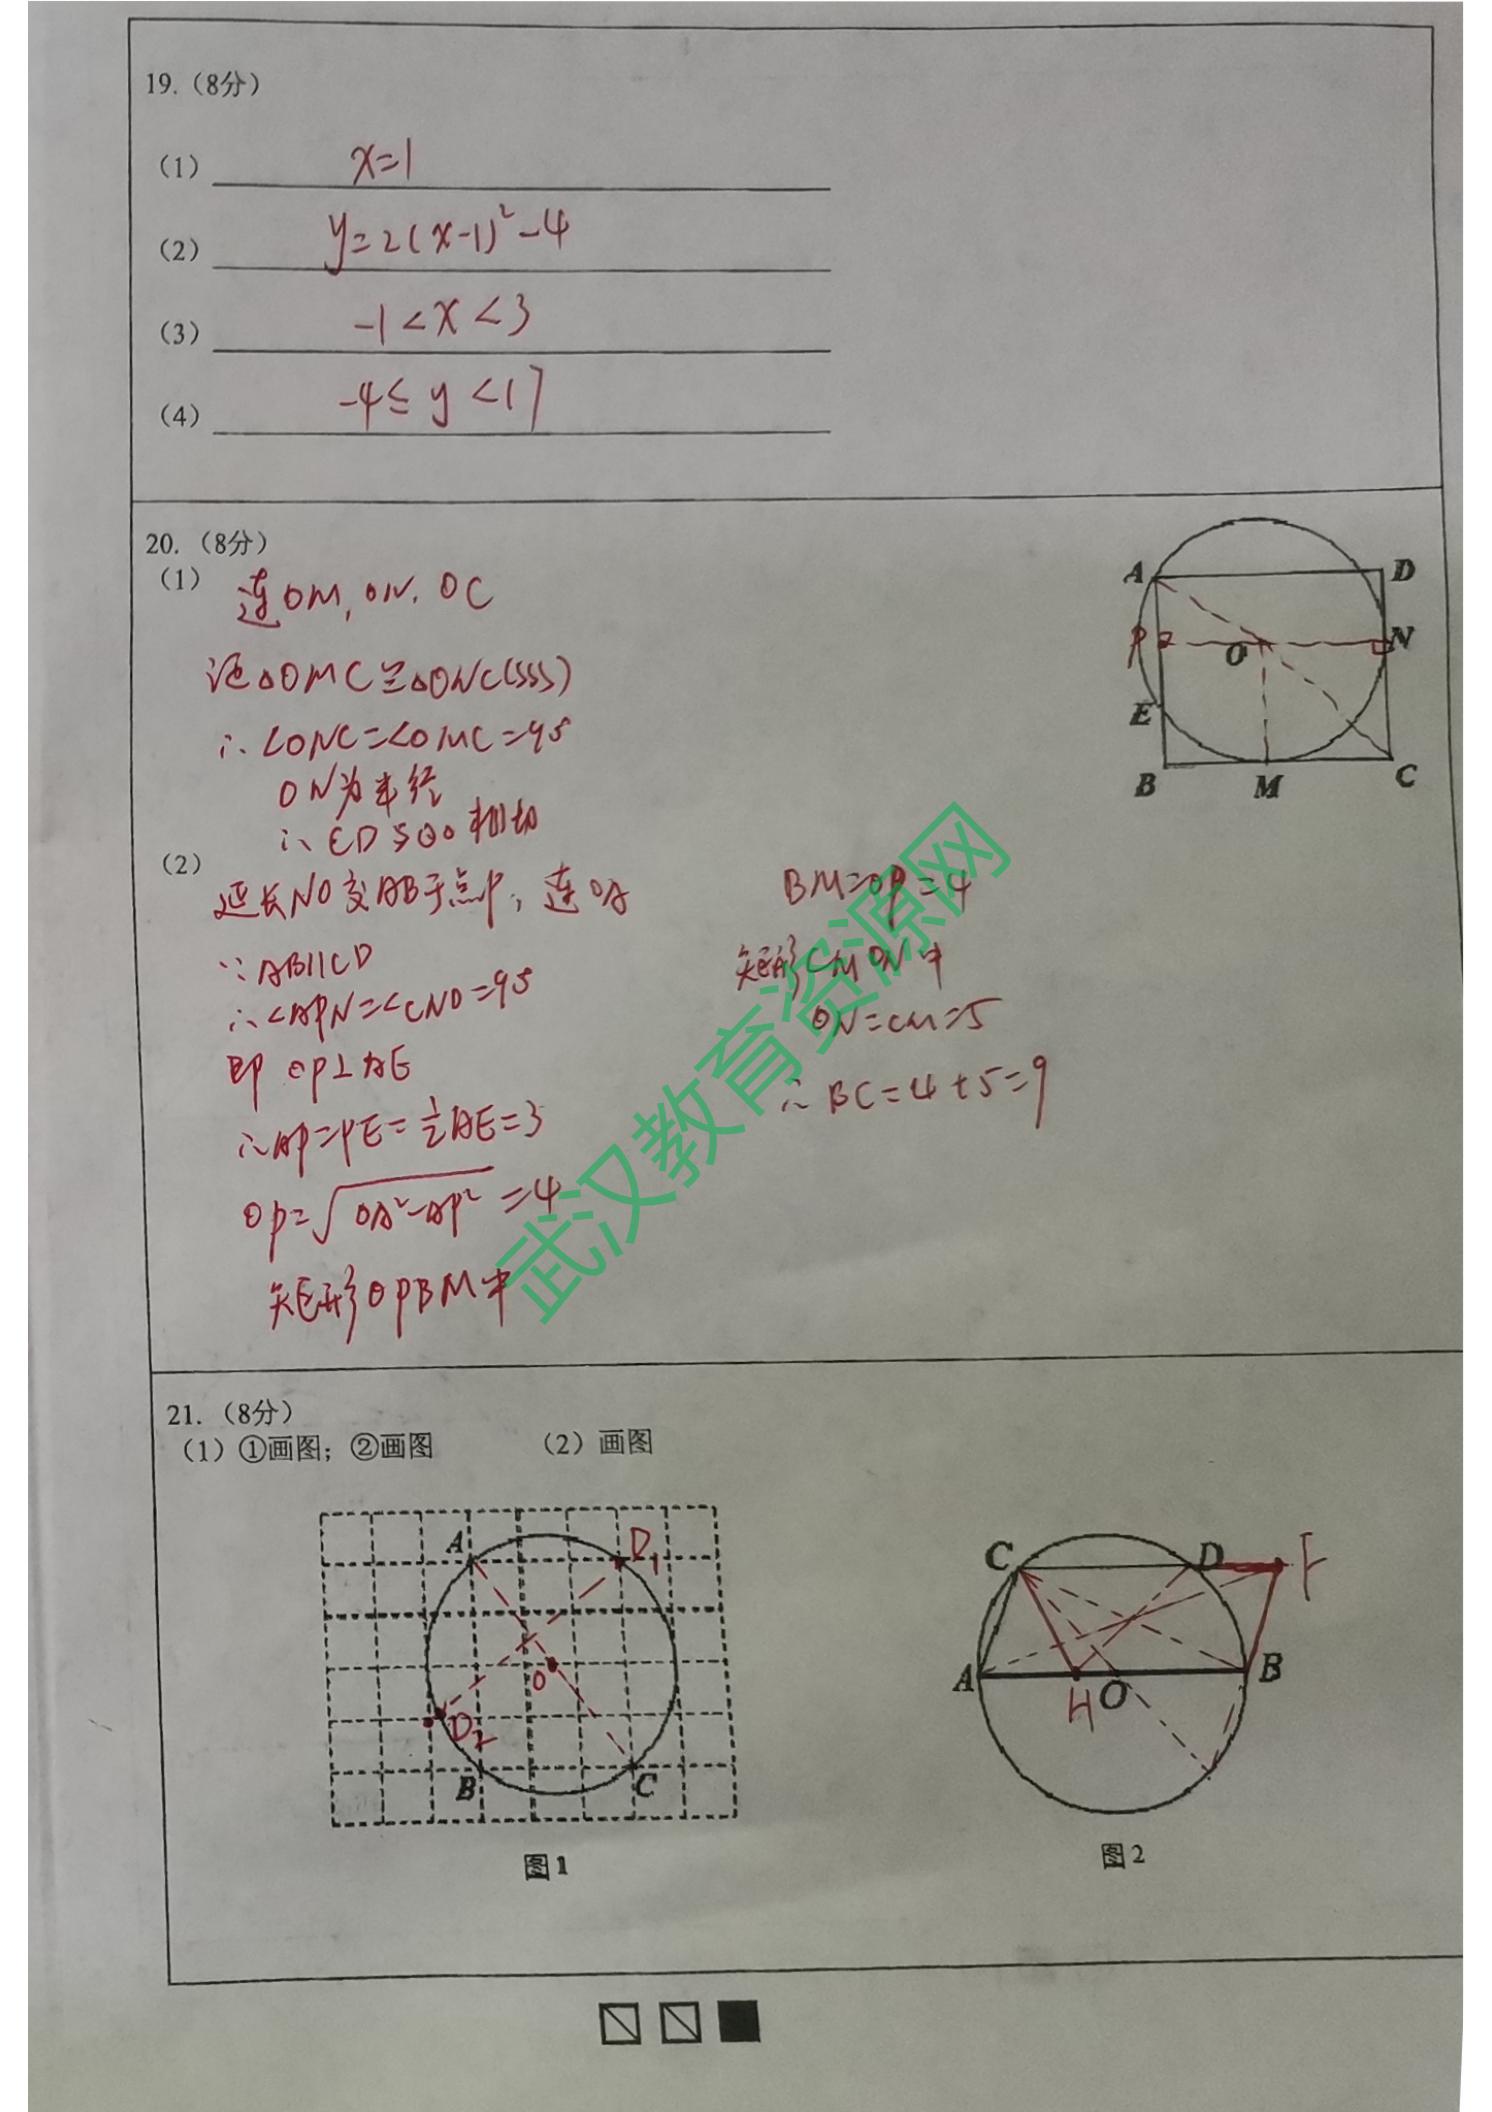 19.（8分）
（1） x=1
（2） y=2(x-1)²-4
（3） -1<x<3
（4） -4≤y<17
20.（8分）
（1） 连OM, ON, OC
证△OMC≌△ONC(SSS)
∴∠ONC=∠OMC=90°
ON为半径
∴CD与⊙O相切
（2）
延长NO交AB于点P，连OA
∵AB∥CD
∴∠APN=∠CNO=90°
即OP⊥AE
∴AP=PE=½AE=3
OP=√(OA²-AP²)=4
矩形OPBM中
BM=OP=4
矩形CMON中
ON=CM=5
∴BC=4+5=9
A D
P O N
E
B M C
武汉教育资源网
21.（8分）
（1）①画图；②画图 （2）画图
A D₁
O
D₂
B C
图1
C D F
A H O B
图2